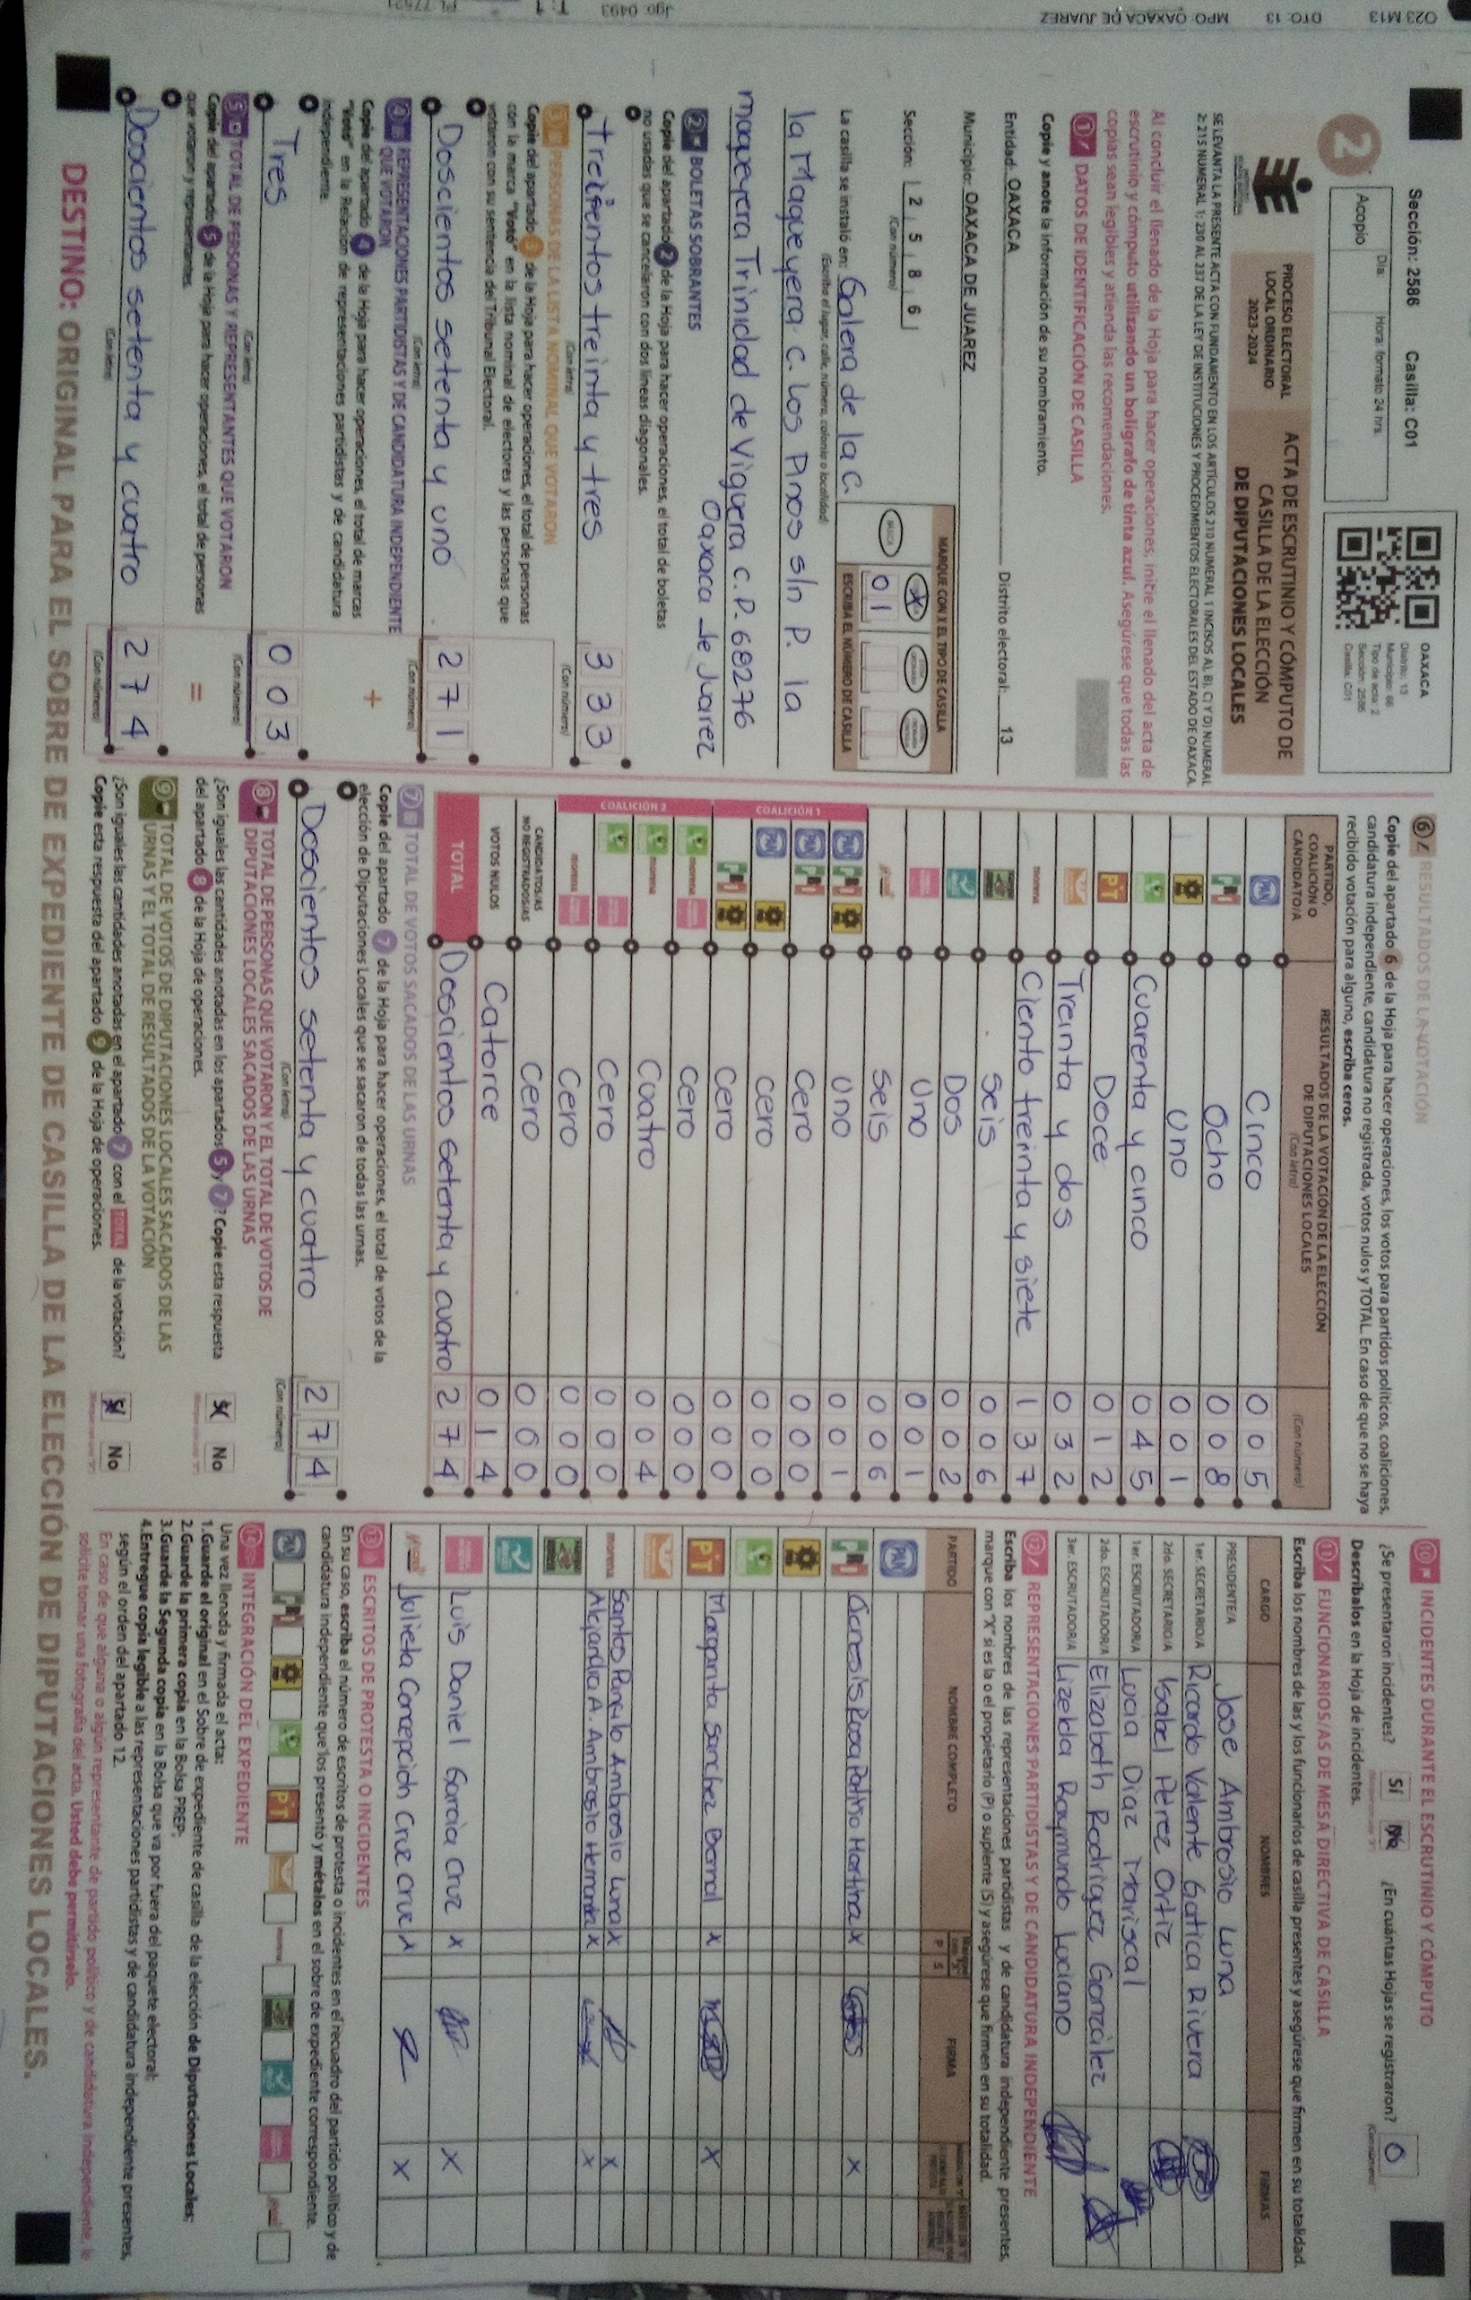 Sección: 2586 Casilla: C01
2
Día: Hora: formato 24 hrs.
Acopio
OAXACA
Distrito: 13
Municipio: 66
Tipo de acta: 2
Sección: 2586
Casilla: C01
PROCESO ELECTORAL
LOCAL ORDINARIO
2023-2024
ACTA DE ESCRUTINIO Y CÓMPUTO DE
CASILLA DE LA ELECCIÓN
DE DIPUTACIONES LOCALES
SE LEVANTA LA PRESENTE ACTA CON FUNDAMENTO EN LOS ARTÍCULOS 210 NUMERAL 1 INCISOS A), B), C) Y D) NUMERAL
2; 215 NUMERAL 1; 230 AL 237 DE LA LEY DE INSTITUCIONES Y PROCEDIMIENTOS ELECTORALES DEL ESTADO DE OAXACA.
Al concluir el llenado de la Hoja para hacer operaciones, inicie el llenado del acta de
escrutinio y cómputo utilizando un bolígrafo de tinta azul. Asegúrese que todas las
copias sean legibles y atienda las recomendaciones.
1 DATOS DE IDENTIFICACIÓN DE CASILLA
Copie y anote la información de su nombramiento.
Entidad: OAXACA Distrito electoral: 13
Municipio: OAXACA DE JUAREZ
Sección: 2 5 8 6
(Con número)
MARQUE CON X EL TIPO DE CASILLA
X
ESCRIBA EL NÚMERO DE CASILLA
0 1
La casilla se instaló en: Galera de la C.
(Escriba el lugar, calle, número, colonia o localidad)
la Maqueyera C. Los Pinos s/n P. la
maqueyera Trinidad de Viguera C.P. 68276
Oaxaca de Juarez
2 BOLETAS SOBRANTES
Copie del apartado 2 de la Hoja para hacer operaciones, el total de boletas
no usadas que se cancelaron con dos líneas diagonales.
treisentos treinta y tres 3 3 3
(Con letra) (Con número)
3 PERSONAS DE LA LISTA NOMINAL QUE VOTARON
Copie del apartado 3 de la Hoja para hacer operaciones, el total de personas
con la marca "Votó" en la lista nominal de electores y las personas que
votaron con su sentencia del Tribunal Electoral.
Doscientos setenta y uno 2 7 1
(Con letra) (Con número)
4 REPRESENTACIONES PARTIDISTAS Y DE CANDIDATURA INDEPENDIENTE
QUE VOTARON
Copie del apartado 4 de la Hoja para hacer operaciones, el total de marcas
"Votó" en la Relación de representaciones partidistas y de candidatura
independiente.
+
Tres 0 0 3
(Con letra) (Con número)
5 TOTAL DE PERSONAS Y REPRESENTANTES QUE VOTARON
Copie del apartado 5 de la Hoja para hacer operaciones, el total de personas
que votaron y representantes.
=
Doscientos setenta y cuatro 2 7 4
(Con letra) (Con número)
6 RESULTADOS DE LA VOTACIÓN
Copie del apartado 6 de la Hoja para hacer operaciones, los votos para partidos políticos, coaliciones,
candidatura independiente, candidatura no registrada, votos nulos y TOTAL. En caso de que no se haya
recibido votación para alguno, escriba ceros.
PARTIDO,
COALICIÓN O
CANDIDATO/A
RESULTADOS DE LA VOTACIÓN DE LA ELECCIÓN
DE DIPUTACIONES LOCALES
(Con letra) (Con número)
PAN Cinco 0 0 5
PRI Ocho 0 0 8
PRD Uno 0 0 1
Cuarenta y cinco 0 4 5
PT Doce 0 1 2
Treinta y dos 0 3 2
morena Ciento treinta y siete 1 3 7
Seis 0 0 6
Dos 0 0 2
Uno 0 0 1
Seis 0 0 6
COALICIÓN 1
PAN PRI PRD Uno 0 0 1
PAN PRI Cero 0 0 0
PAN PRD Cero 0 0 0
PRI PRD Cero 0 0 0
COALICIÓN 2
morena Cero 0 0 0
morena Cuatro 0 0 4
Cero 0 0 0
morena Cero 0 0 0
CANDIDATOS/AS
NO REGISTRADOS/AS Cero 0 0 0
VOTOS NULOS Catorce 0 1 4
TOTAL Doscientos setenta y cuatro 2 7 4
7 TOTAL DE VOTOS SACADOS DE LAS URNAS
Copie del apartado 7 de la Hoja para hacer operaciones, el total de votos de la
elección de Diputaciones Locales que se sacaron de todas las urnas.
Doscientos setenta y cuatro 2 7 4
(Con letra) (Con número)
8 TOTAL DE PERSONAS QUE VOTARON Y EL TOTAL DE VOTOS DE
DIPUTACIONES LOCALES SACADOS DE LAS URNAS
¿Son iguales las cantidades anotadas en los apartados 5 y 7? Copie esta respuesta
del apartado 8 de la Hoja de operaciones.
Sí No
9 TOTAL DE VOTOS DE DIPUTACIONES LOCALES SACADOS DE LAS
URNAS Y EL TOTAL DE RESULTADOS DE LA VOTACIÓN
¿Son iguales las cantidades anotadas en el apartado 7 con el TOTAL de la votación?
Copie esta respuesta del apartado 9 de la Hoja de operaciones.
Sí No
10 INCIDENTES DURANTE EL ESCRUTINIO Y CÓMPUTO
¿Se presentaron incidentes? Sí No ¿En cuántas Hojas se registraron? 0
Descríbalos en la Hoja de incidentes.
11 FUNCIONARIOS/AS DE MESA DIRECTIVA DE CASILLA
Escriba los nombres de las y los funcionarios de casilla presentes y asegúrese que firmen en su totalidad.
CARGO NOMBRES FIRMAS
PRESIDENTE/A Jose Ambrosio Luna
1er. SECRETARIO/A Ricardo Valente Gatica Rivera
2do. SECRETARIO/A Isabel Pérez Ortiz
1er. ESCRUTADOR/A Lucia Diaz Mariscal
2do. ESCRUTADOR/A Elizabeth Rodriguez González
3er. ESCRUTADOR/A Lizelda Raymundo Luciano
12 REPRESENTACIONES PARTIDISTAS Y DE CANDIDATURA INDEPENDIENTE
Escriba los nombres de las representaciones partidistas y de candidatura independiente presentes,
marque con "X" si es la o el propietario (P) o suplente (S) y asegúrese que firmen en su totalidad.
PARTIDO NOMBRE COMPLETO P S FIRMA
PAN
PRI X X
PRD
PT Margarita Sanchez Bernal X X
morena Santos Ambrosio Luna X X
Alejandra A. Ambrosio Hernandez X X
Luis Daniel Garcia Cruz X X
Julieta Concepción Cruz Cruz X X
13 ESCRITOS DE PROTESTA O INCIDENTES
En su caso, escriba el número de escritos de protesta o incidentes en el recuadro del partido político y de
candidatura independiente que los presentó y métalos en el sobre de expediente correspondiente.
PAN PRI PRD PT morena
14 INTEGRACIÓN DEL EXPEDIENTE
Una vez llenada y firmada el acta:
1.Guarde el original en el Sobre de expediente de casilla de la elección de Diputaciones Locales;
2.Guarde la primera copia en la Bolsa PREP;
3.Guarde la Segunda copia en la Bolsa que va por fuera del paquete electoral;
4.Entregue copia legible a las representaciones partidistas y de candidatura independiente presentes,
según el orden del apartado 12.
En caso de que alguna o algún representante de partido político y de candidatura independiente, le
solicite tomar una fotografía del acta, Usted debe permitírselo.
DESTINO: ORIGINAL PARA EL SOBRE DE EXPEDIENTE DE CASILLA DE LA ELECCIÓN DE DIPUTACIONES LOCALES.
O23 M13 DTO: 13 MPO: OAXACA DE JUAREZ Jgo: 0493